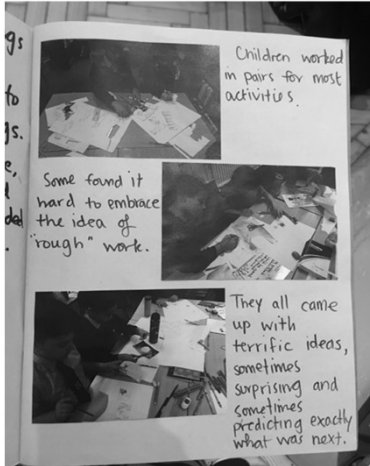 gs
to
gs.
e,
ded
.
Children worked
in pairs for most
activities.
Some found it
hard to embrace
the idea of
"rough" work.
They all came
up with
terrific ideas,
sometimes
surprising and
sometimes
predicting exactly
what was next.